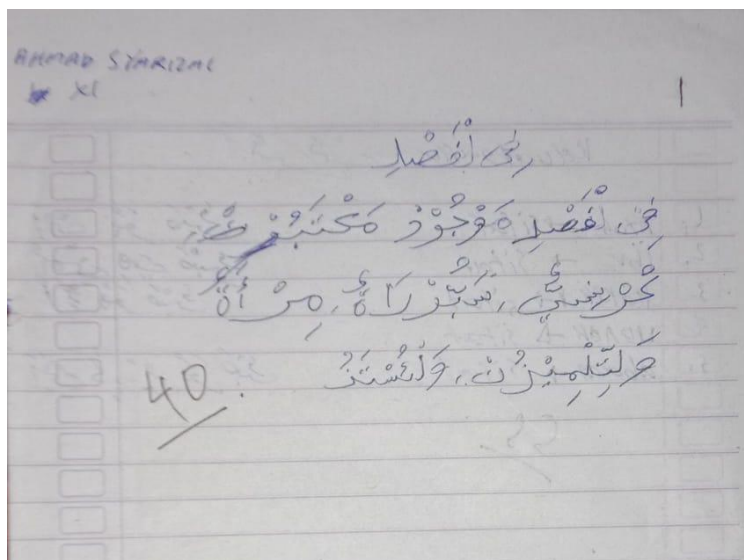 AHMAD SYARIZAL
XI
1
فِى لْفَصْلِ
فِى لْفَصْلِ مَوْجُوْدْ مَكْتَبُنْ
كُرْسِيٌ، سَبُّوْرَاةٌ، مِرْأَةٌ
وَلتِّلْمِيْذُنْ، وَلْئُسْتَذُ
40